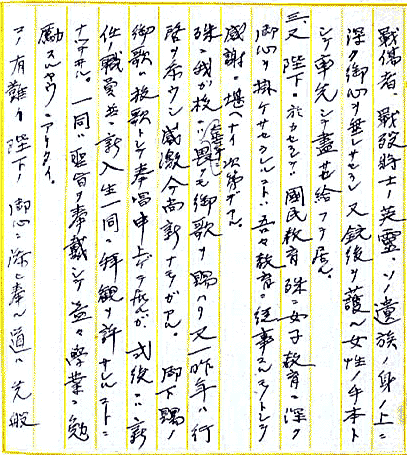 戦傷者、戦歿将士ノ英霊、ソノ遺族ノ身ノ上ニ
深ク御心ヲ垂レサセラレ又銃後ヲ護ル女性ノ手本ト
シテ率先シテ盡サセ給フテ居ル。
三、又 陛下ニ於カセラレテハ國民教育殊ニ女子教育ニ深ク
御心ヲ掛ケサセラレルコトハ吾々教育ニ従事スルモノトシテ
感謝ニ堪ヘナイ次第デアル。
殊ニ我ガ校ハ畏クモ御歌ヲ賜ハリ又一昨年ハ行
啓ヲ辱ウシ感激今尚新ナモノガアル。御下賜ノ
御歌ハ校歌トシテ奉唱申上ゲテ居ルガ、式後ニハ新
任ノ職員並ニ新入生一同ニ拝観ヲ許サレルコトニ
ナツテヰル。一同ハ聖旨ヲ奉戴シテ益々学業ニ勉
励スルヤウニアリタイ。
コノ有難イ陛下ノ御心ニ添ヒ奉ル道ハ先般